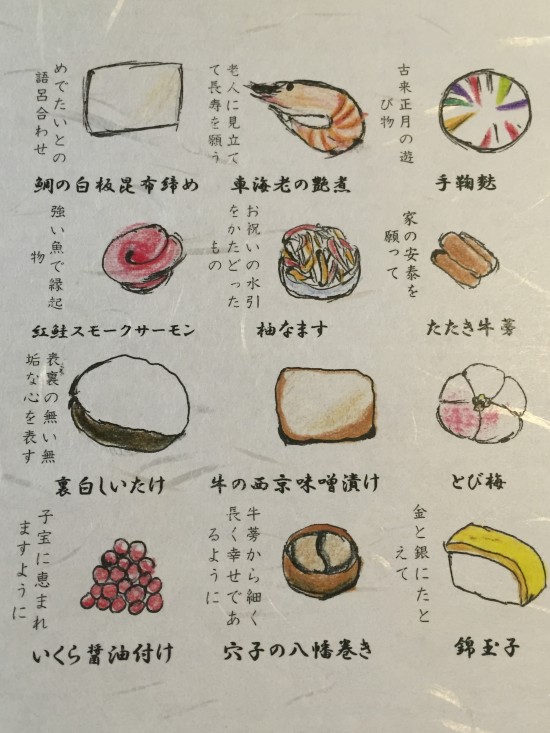 めでたいとの
語呂合わせ
鯛の白板昆布締め
老人に見立て
て長寿を願う
車海老の艶煮
古来正月の遊
び物
手鞠麩
強い魚で縁起
物
紅鮭スモークサーモン
お祝いの水引
をかたどった
もの
柚なます
家の安泰を
願って
たたき牛蒡
表裏の無い無
垢な心を表す
裏白しいたけ
牛の西京味噌漬け
とび梅
子宝に恵まれ
ますように
いくら醤油付け
牛蒡から細く
長く幸せであ
るように
穴子の八幡巻き
金と銀にたと
えて
錦玉子